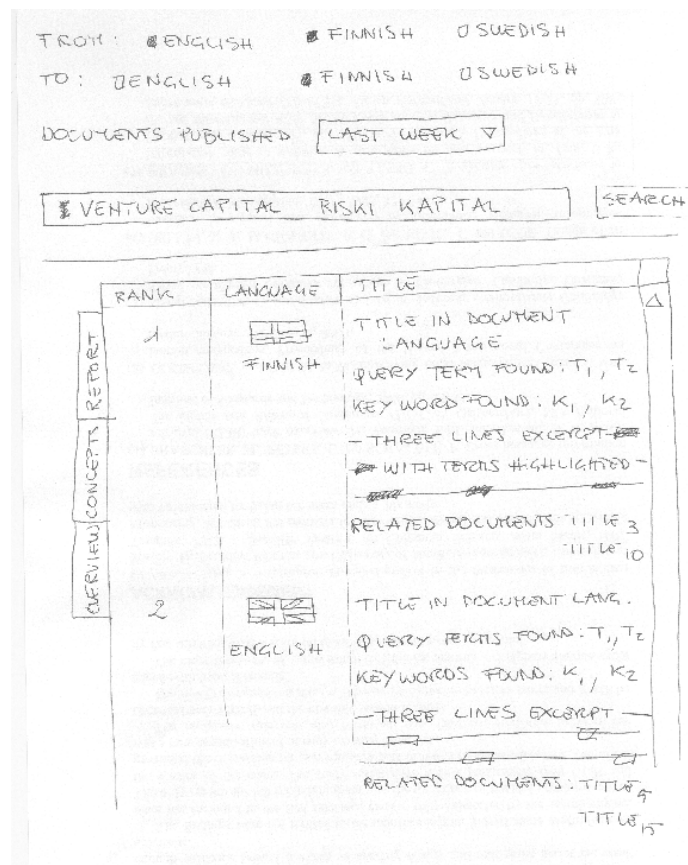 FROM: ENGLISH FINNISH SWEDISH
TO: ENGLISH FINNISH SWEDISH
DOCUMENTS PUBLISHED LAST WEEK
VENTURE CAPITAL RISKI KAPITAL SEARCH
RANK LANGUAGE TITLE
REPORT
CONCEPTS
OVERVIEW
1
FINNISH
TITLE IN DOCUMENT
LANGUAGE
QUERY TERM FOUND: T1, T2
KEY WORD FOUND: K1, K2
- THREE LINES EXCERPT
WITH TERMS HIGHLIGHTED -
RELATED DOCUMENTS TITLE 3
TITLE 10
2
ENGLISH
TITLE IN DOCUMENT LANG.
QUERY TERMS FOUND: T1, T2
KEY WORDS FOUND: K1, K2
- THREE LINES EXCERPT -
RELATED DOCUMENTS: TITLE
TITLE 15